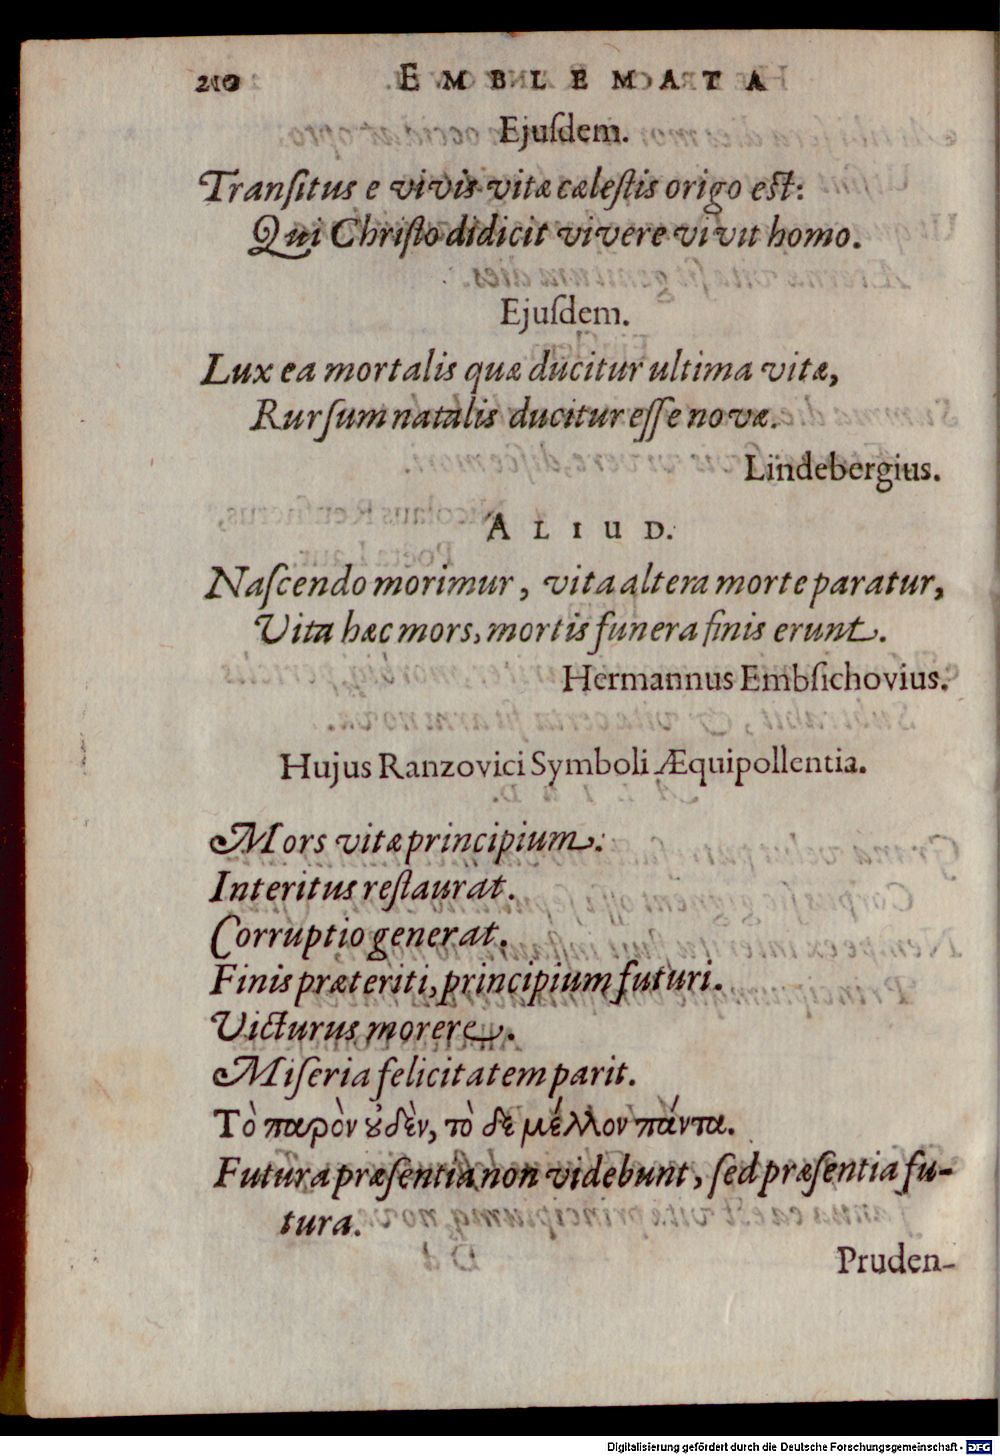 210 EMBLEMATA
Ejuſdem.
Tranſitus e vivis vitæ cæleſtis origo eſt:
Qui Chriſto didicit vivere vivit homo.
Ejuſdem.
Lux ea mortalis quæ ducitur ultima vitæ,
Rurſum natalis ducitur eſſe novæ.
Lindebergius.
ALIUD.
Naſcendo morimur, vita altera morte paratur,
Vita hæc mors, mortis funera finis erunt.
Hermannus Embſichovius.
Hujus Ranzovici Symboli Æquipollentia.
Mors vitæ principium.
Interitus reſtaurat.
Corruptio generat.
Finis præteriti, principium futuri.
Victurus morere.
Miſeria felicitatem parit.
Τὸ παρὸν ȣ̓δὲν, τὸ δὲ μέλλον πάντα.
Futura præſentia non videbunt, ſed præſentia fu-
tura.
Pruden-
Digitalisierung gefördert durch die Deutsche Forschungsgemeinschaft - DFG